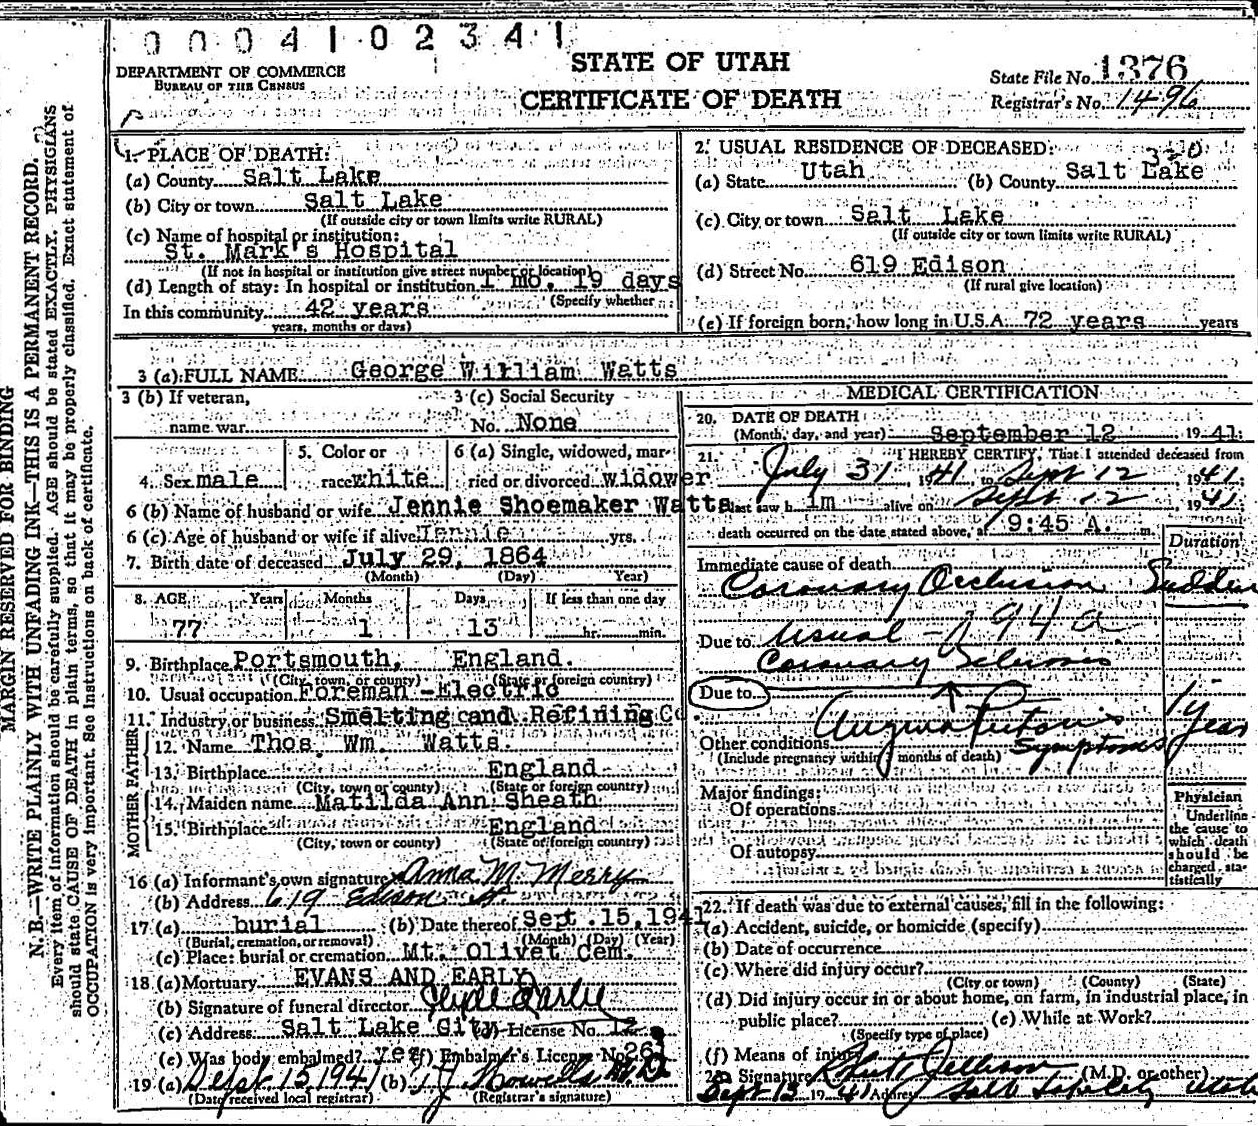 0 0 0 4 1 0 2 3 4 1
STATE OF UTAH
CERTIFICATE OF DEATH
DEPARTMENT OF COMMERCE
BUREAU OF THE CENSUS
State File No. 1376
Registrar's No. 1496
MARGIN RESERVED FOR BINDING
N. B.—WRITE PLAINLY WITH UNFADING INK—THIS IS A PERMANENT RECORD.
Every item of information should be carefully supplied. AGE should be stated EXACTLY. PHYSICIANS
should state CAUSE OF DEATH in plain terms, so that it may be properly classified. Exact statement of
OCCUPATION is very important. See instructions on back of certificate.
1. PLACE OF DEATH:
(a) County Salt Lake
(b) City or town Salt Lake
(If outside city or town limits write RURAL)
(c) Name of hospital or institution:
St. Mark's Hospital
(If not in hospital or institution give street number or location)
(d) Length of stay: In hospital or institution 1 mo. 19 days
(Specify whether
In this community 42 years
years, months or days)
2. USUAL RESIDENCE OF DECEASED:
320
(a) State Utah (b) County Salt Lake
(c) City or town Salt Lake
(If outside city or town limits write RURAL)
(d) Street No. 619 Edison
(If rural give location)
(e) If foreign born, how long in U.S.A. 72 years years
3 (a) FULL NAME George William Watts
3 (b) If veteran,
name war
3 (c) Social Security
No. None
4. Sex male
5. Color or
race white
6 (a) Single, widowed, mar-
ried or divorced widower
6 (b) Name of husband or wife Jennie Shoemaker Watts
6 (c) Age of husband or wife if alive Jennie yrs.
7. Birth date of deceased July 29, 1864
(Month) (Day) Year)
8. AGE Years Months Days If less than one day
77 1 13 hr. min.
9. Birthplace Portsmouth, England.
(City, town, or county) (State or foreign country)
10. Usual occupation Foreman -Electric
11. Industry or business Smelting and Refining Co
FATHER
12. Name Thos. Wm. Watts.
13. Birthplace England
(City, town or county) (State or foreign country)
MOTHER
14. Maiden name Matilda Ann Sheath
15. Birthplace England
(City, town or county) (State or foreign country)
16 (a) Informant's own signature Anna M. Merry
(b) Address 619 Edison St.
17 (a) burial (b) Date thereof Sept .15,1941
(Burial, cremation, or removal) (Month) (Day) (Year)
(c) Place: burial or cremation Mt. Olivet Cem.
18 (a) Mortuary EVANS AND EARLY
(b) Signature of funeral director
(c) Address Salt Lake City (d) License No. 12
(e) Was body embalmed? yes (f) Embalmer's License No. 263
19 (a) Sept 15, 1941 (b) Howells M.D
(Date received local registrar) (Registrar's signature)
MEDICAL CERTIFICATION
20. DATE OF DEATH
(Month, day, and year) September 12 1941
21. I HEREBY CERTIFY, That I attended deceased from
July 31 1941, to Sept 12 1941;
last saw h im alive on Sept 12, 1941
death occurred on the date stated above, at 9:45 A. m.
Duration
Immediate cause of death
Coronary Occlusion Sudden
Due to Usual - 94a
Coronary Sclerosis
Due to
Angina Pectoris 1 year
Symptoms
Other conditions
(Include pregnancy within 3 months of death)
Major findings:
Of operations
Of autopsy
Physician
Underline
the cause to
which death
should be
charged sta-
tistically
22. If death was due to external causes, fill in the following:
(a) Accident, suicide, or homicide (specify)
(b) Date of occurrence
(c) Where did injury occur?
(City or town) (County) (State)
(d) Did injury occur in or about home, on farm, in industrial place, in
public place? (e) While at Work?
(Specify type of place)
(f) Means of injury
23. Signature (M.D. or other)
Sept 13 1941 Address Salt Lake City Utah